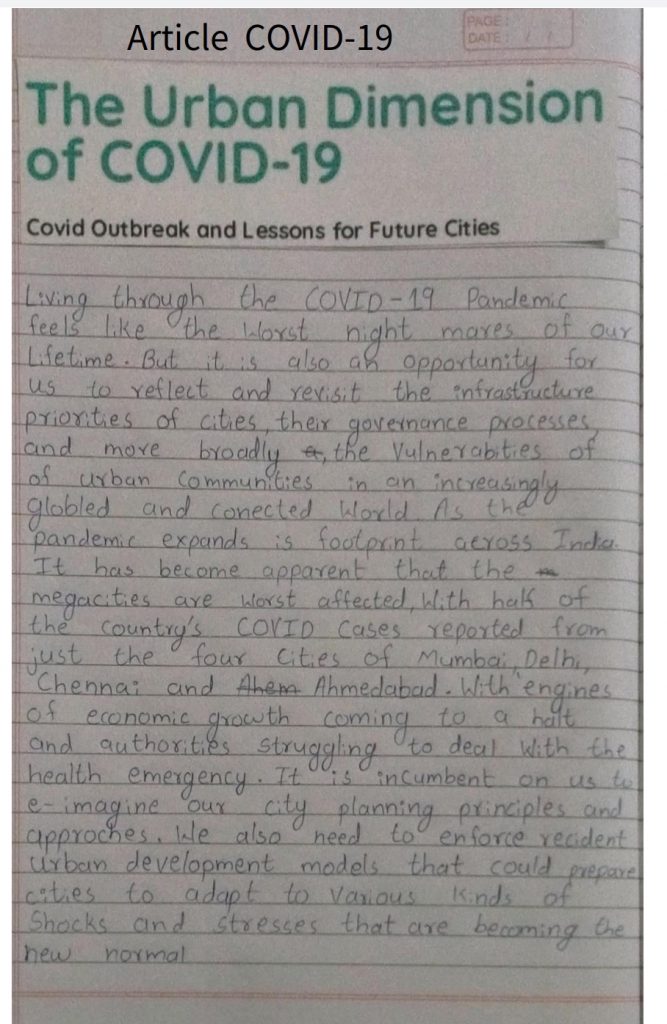 Article COVID-19
PAGE:
DATE: / /
The Urban Dimension
of COVID-19
Covid Outbreak and Lessons for Future Cities
Living through the COVID-19 Pandemic
feels like the Worst night mares of our
Lifetime. But it is also an opportunity for
us to reflect and revisit the infrastructure
priorities of cities, their governance processes,
and more broadly the Vulnerabities of
of urban Communities in an increasingly
globled and conected World. As the
pandemic expands is footprint across India.
It has become apparent that the
megacities are worst affected, With half of
the country's COVID Cases reported from
just the four Cities of Mumbai, Delhi,
Chennai and Ahem Ahmedabad. With engines
of economic growth coming to a halt
and authorities struggling to deal With the
health emergency. It is incumbent on us to
e-imagine our city planning principles and
approches. We also need to enforce recident
urban development models that could prepare
cities to adapt to Various Kinds of
Shocks and stresses that are becoming the
new normal